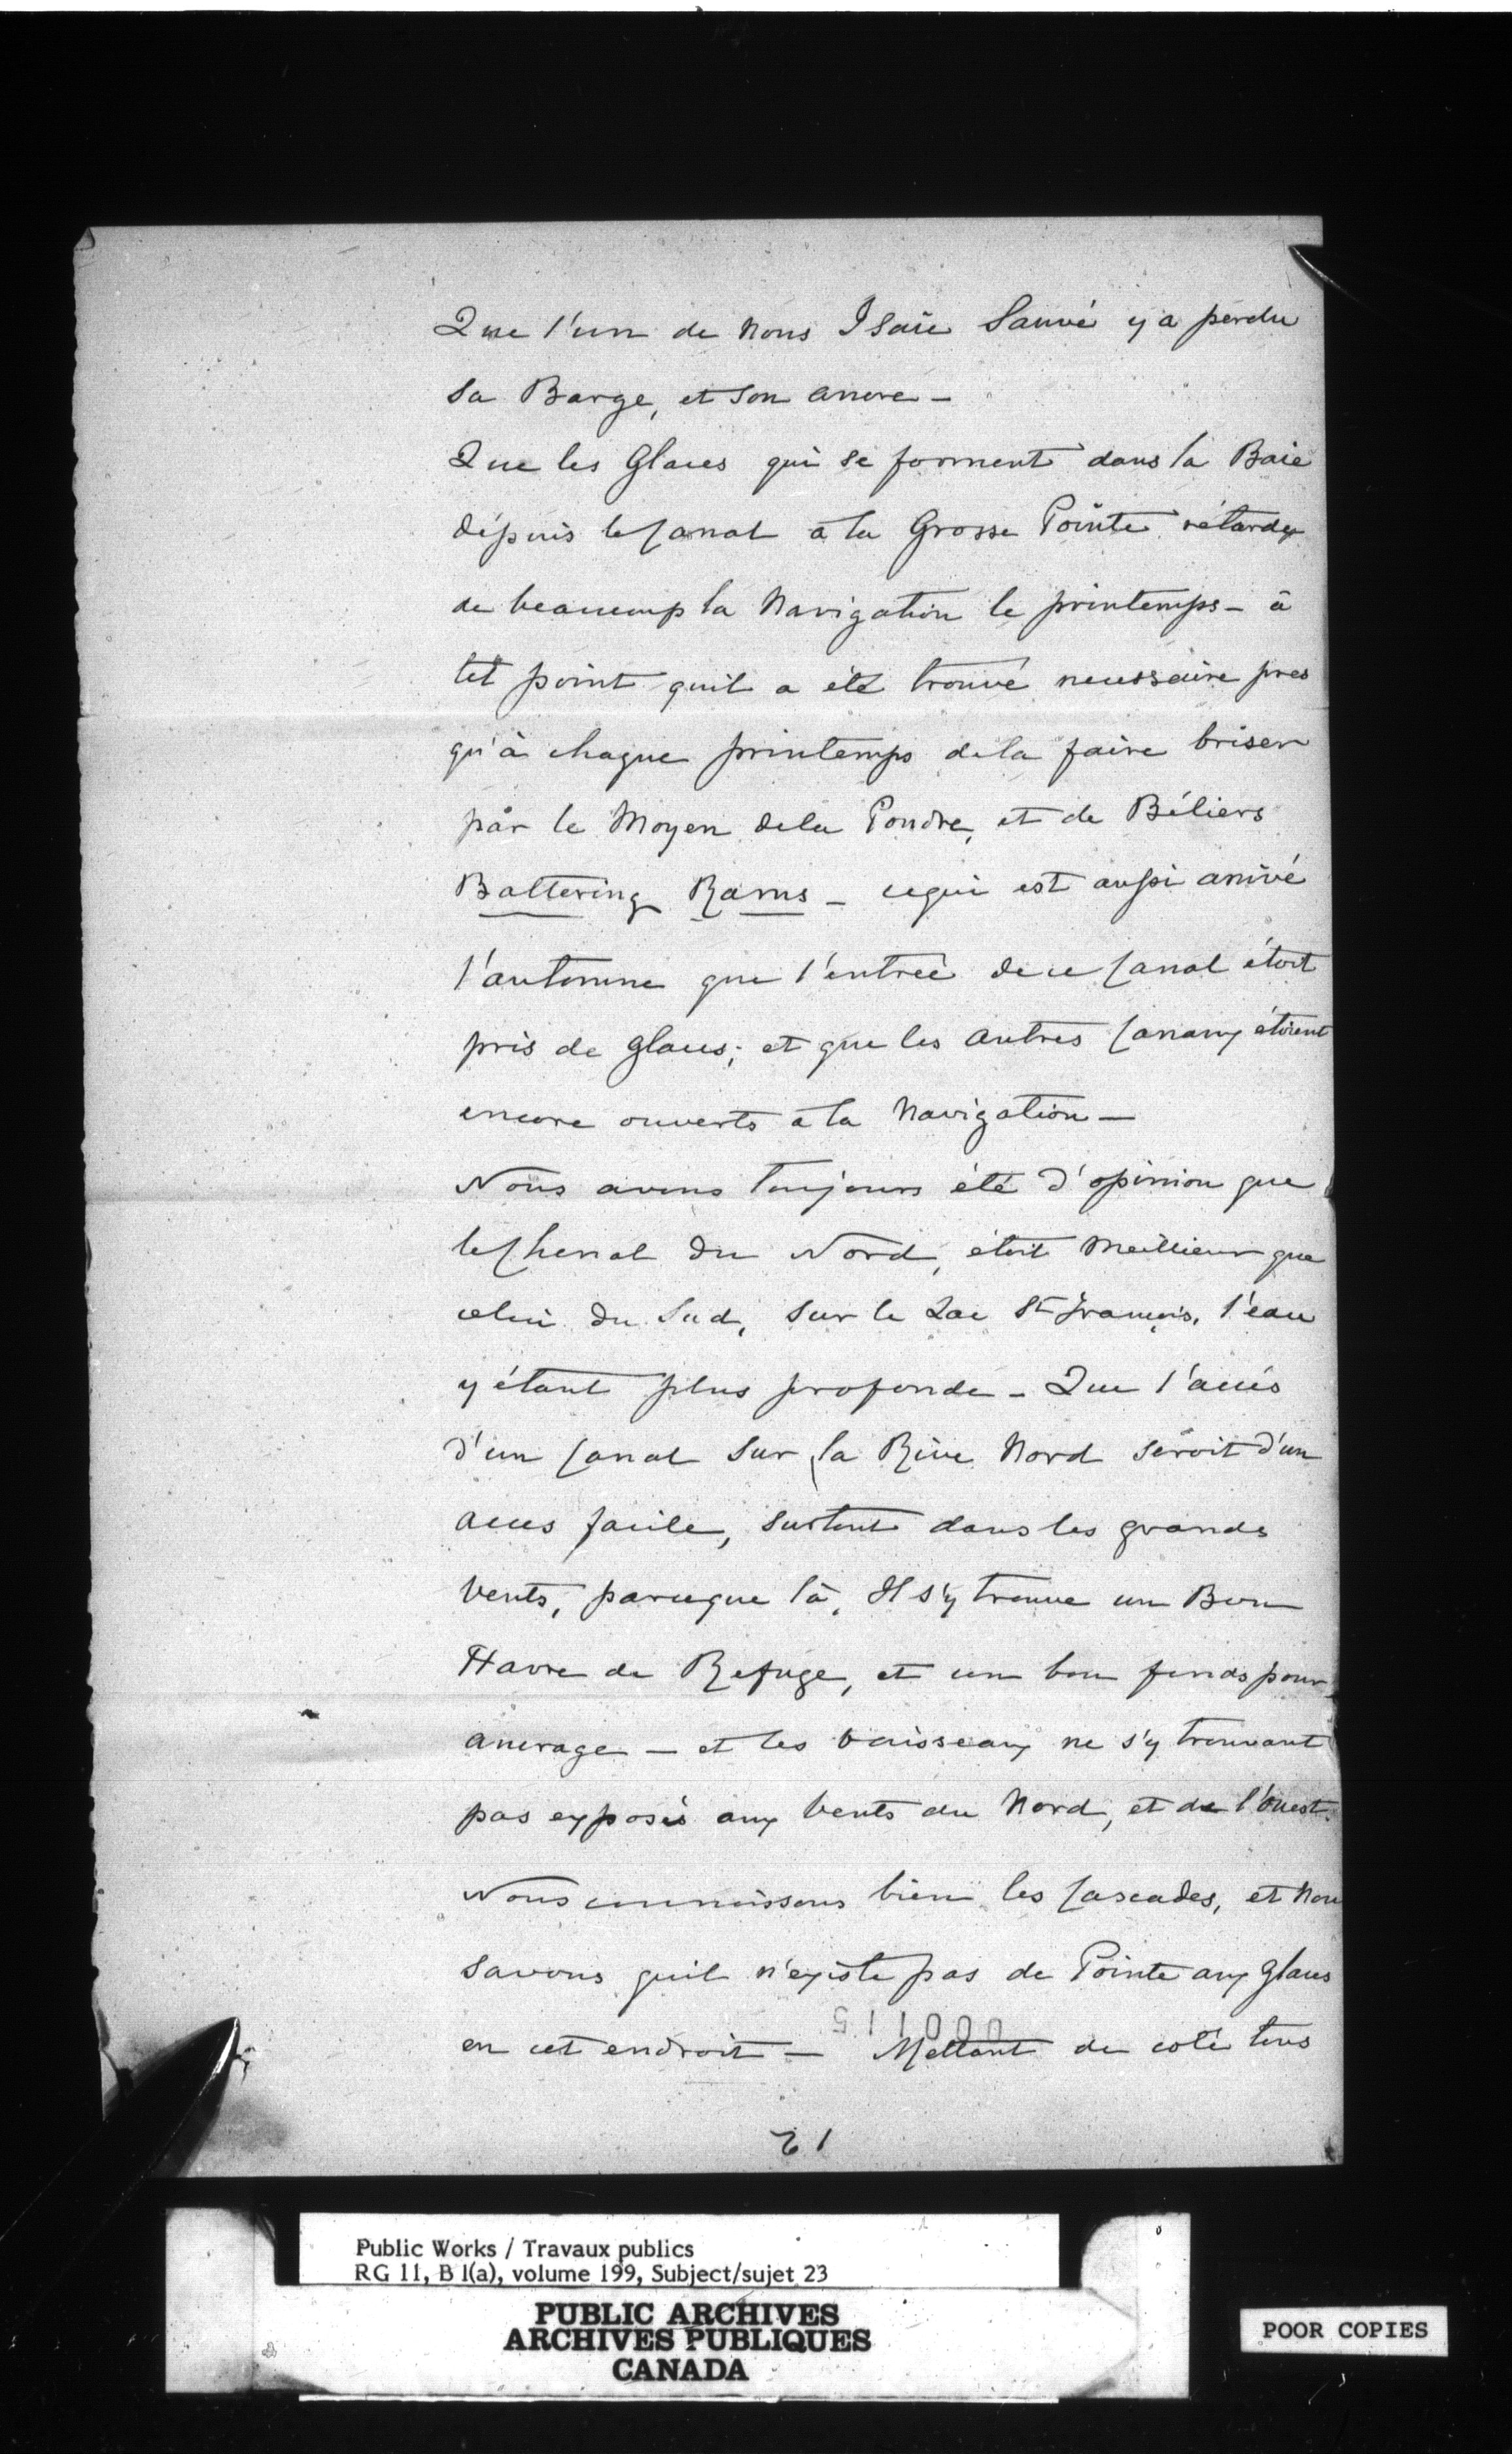 Que l'un de Nous Isaïe Sauvé y a perdu
sa Barge, et son ancre —
Que les Glaces qui se forment dans la Baie
dépuis le Canal a la Grosse Pointe rétarde
de beaucoup la Navigation le printemps — à
tel point quil a été trouvé necessaire pres
qu'à chaque printemps de la faire briser
par le Moyen de la Poudre, et de Béliers
Battering Rams — cequi est aussi arrivé
l'automne que l'entreé de ce Canal étoit
pris de glaces; et que les autres Canaux étoient
encore ouverts a la Navigation —
Nous avons toujours été d'opinion que
le Chenal du Nord, étoit Meillieur que
celui du Sud, sur le Lac St François, l'eau
y étant plus profonde — Que l'accés
d'un Canal sur la Rive Nord seroit d'un
acces facile, surtout dans les grands
Vents, parceque là, Il s'y trouve un Bon
Havre de Refuge, et un bon fonds pour
ancrage — et les vaisseaux ne s'y trouvant
pas exposés aux Vents du Nord, et de l'ouest.
Nous connoissons bien les Cascades, et Nou
savons quil n'existe pas de Pointe aux Glaces
en cet endroit — Mettant de coté tous
000115
21
Public Works / Travaux publics
RG 11, B 1(a), volume 199, Subject/sujet 23
PUBLIC ARCHIVES
ARCHIVES PUBLIQUES
CANADA
POOR COPIES